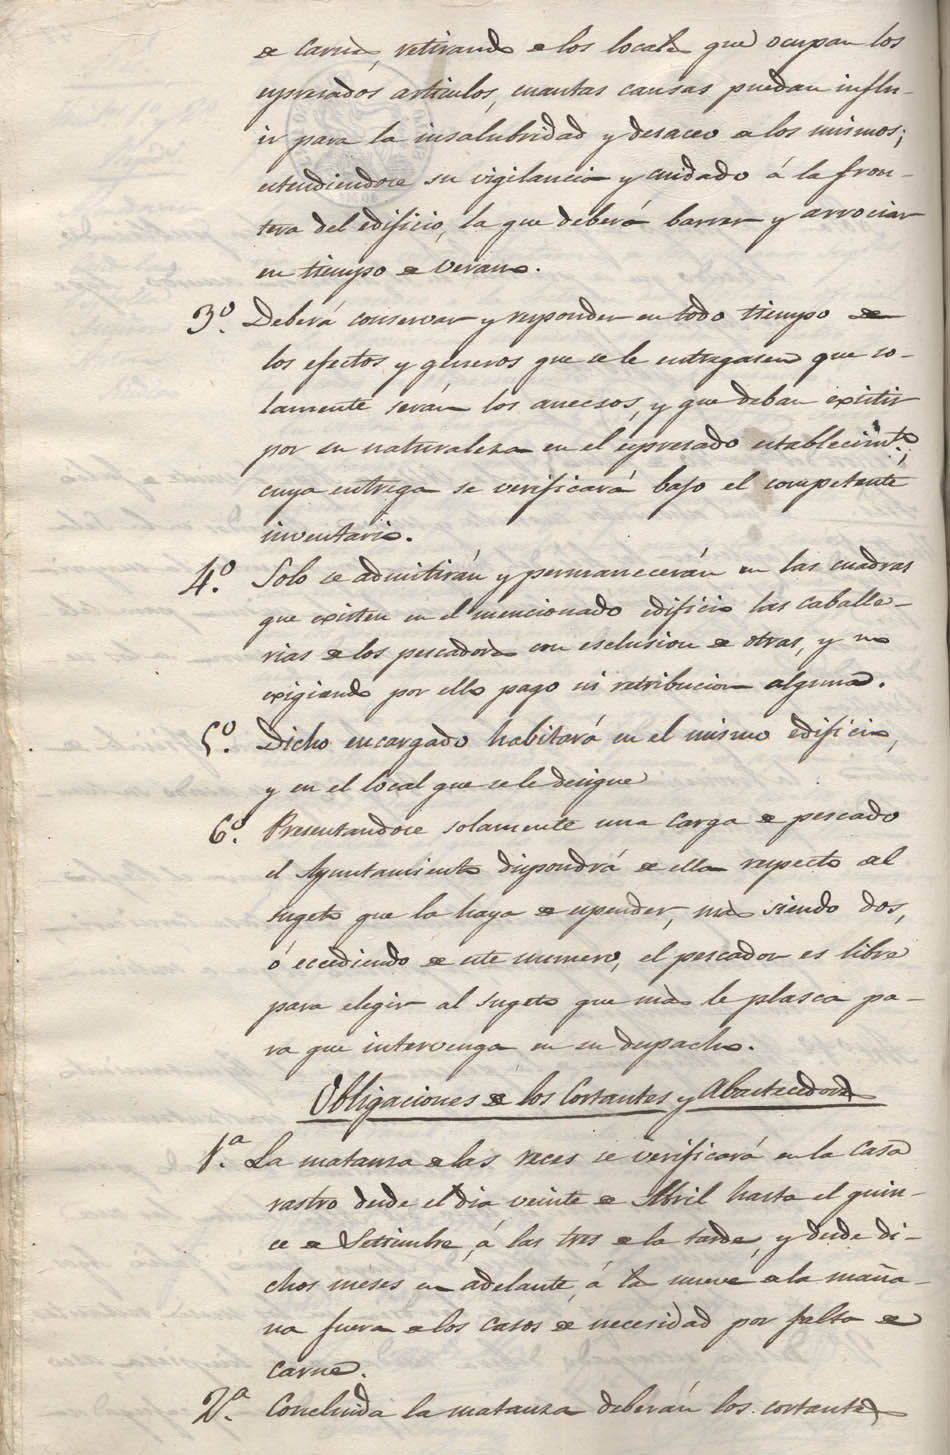 de carnes, retirando de los locales que ocupan los
espresados articulos, cuantas causas puedan influ-
ir para la insalubridad y desaceo de los mismos;
estendiendose su vigilancia y cuidado á la fron-
tera del edificio, la que deberá barrer y arrociar
en tiempo de verano.
3º. Deberá conservar y responder en todo tiempo de
los efectos y géneros que se le entregasen que so-
lamente serán los anecsos, y que deban existir
por su naturaleza en el espresado establecimto.;
cuya entrega se verificará bajo el competente
inventario.
4º. Solo se admitirán y permanecerán en las cuadras
que existen en el mencionado edificio las caballe-
rias de los pescadores con esclusion de otras, y no
exigiendo por ello pago ni retribucion alguna.
5º. Dicho encargado habitará en el mismo edificio,
y en el local que se le designe
6º. Presentandose solamente una carga de pescado
el Ayuntamiento dispondrá de ella respecto al
sugeto que la haya de espender, mas siendo dos,
ó eccediendo de este numero, el pescador es libre
para elegir al sugeto que mas le plasca pa-
ra que intervenga en su despacho.
Obligaciones de los Cortantes y Abastecedores
1.ª La matanza de las reces se verificará en la casa
rastro desde el dia veinte de Abril hasta el quin-
ce de Setiembre, á las tres de la tarde, y desde di-
chos meses en adelante, á las nueve de la maña-
na fuera de los casos de necesidad por falta de
carne.
2.ª Concluida la matanza deberán los cortantes